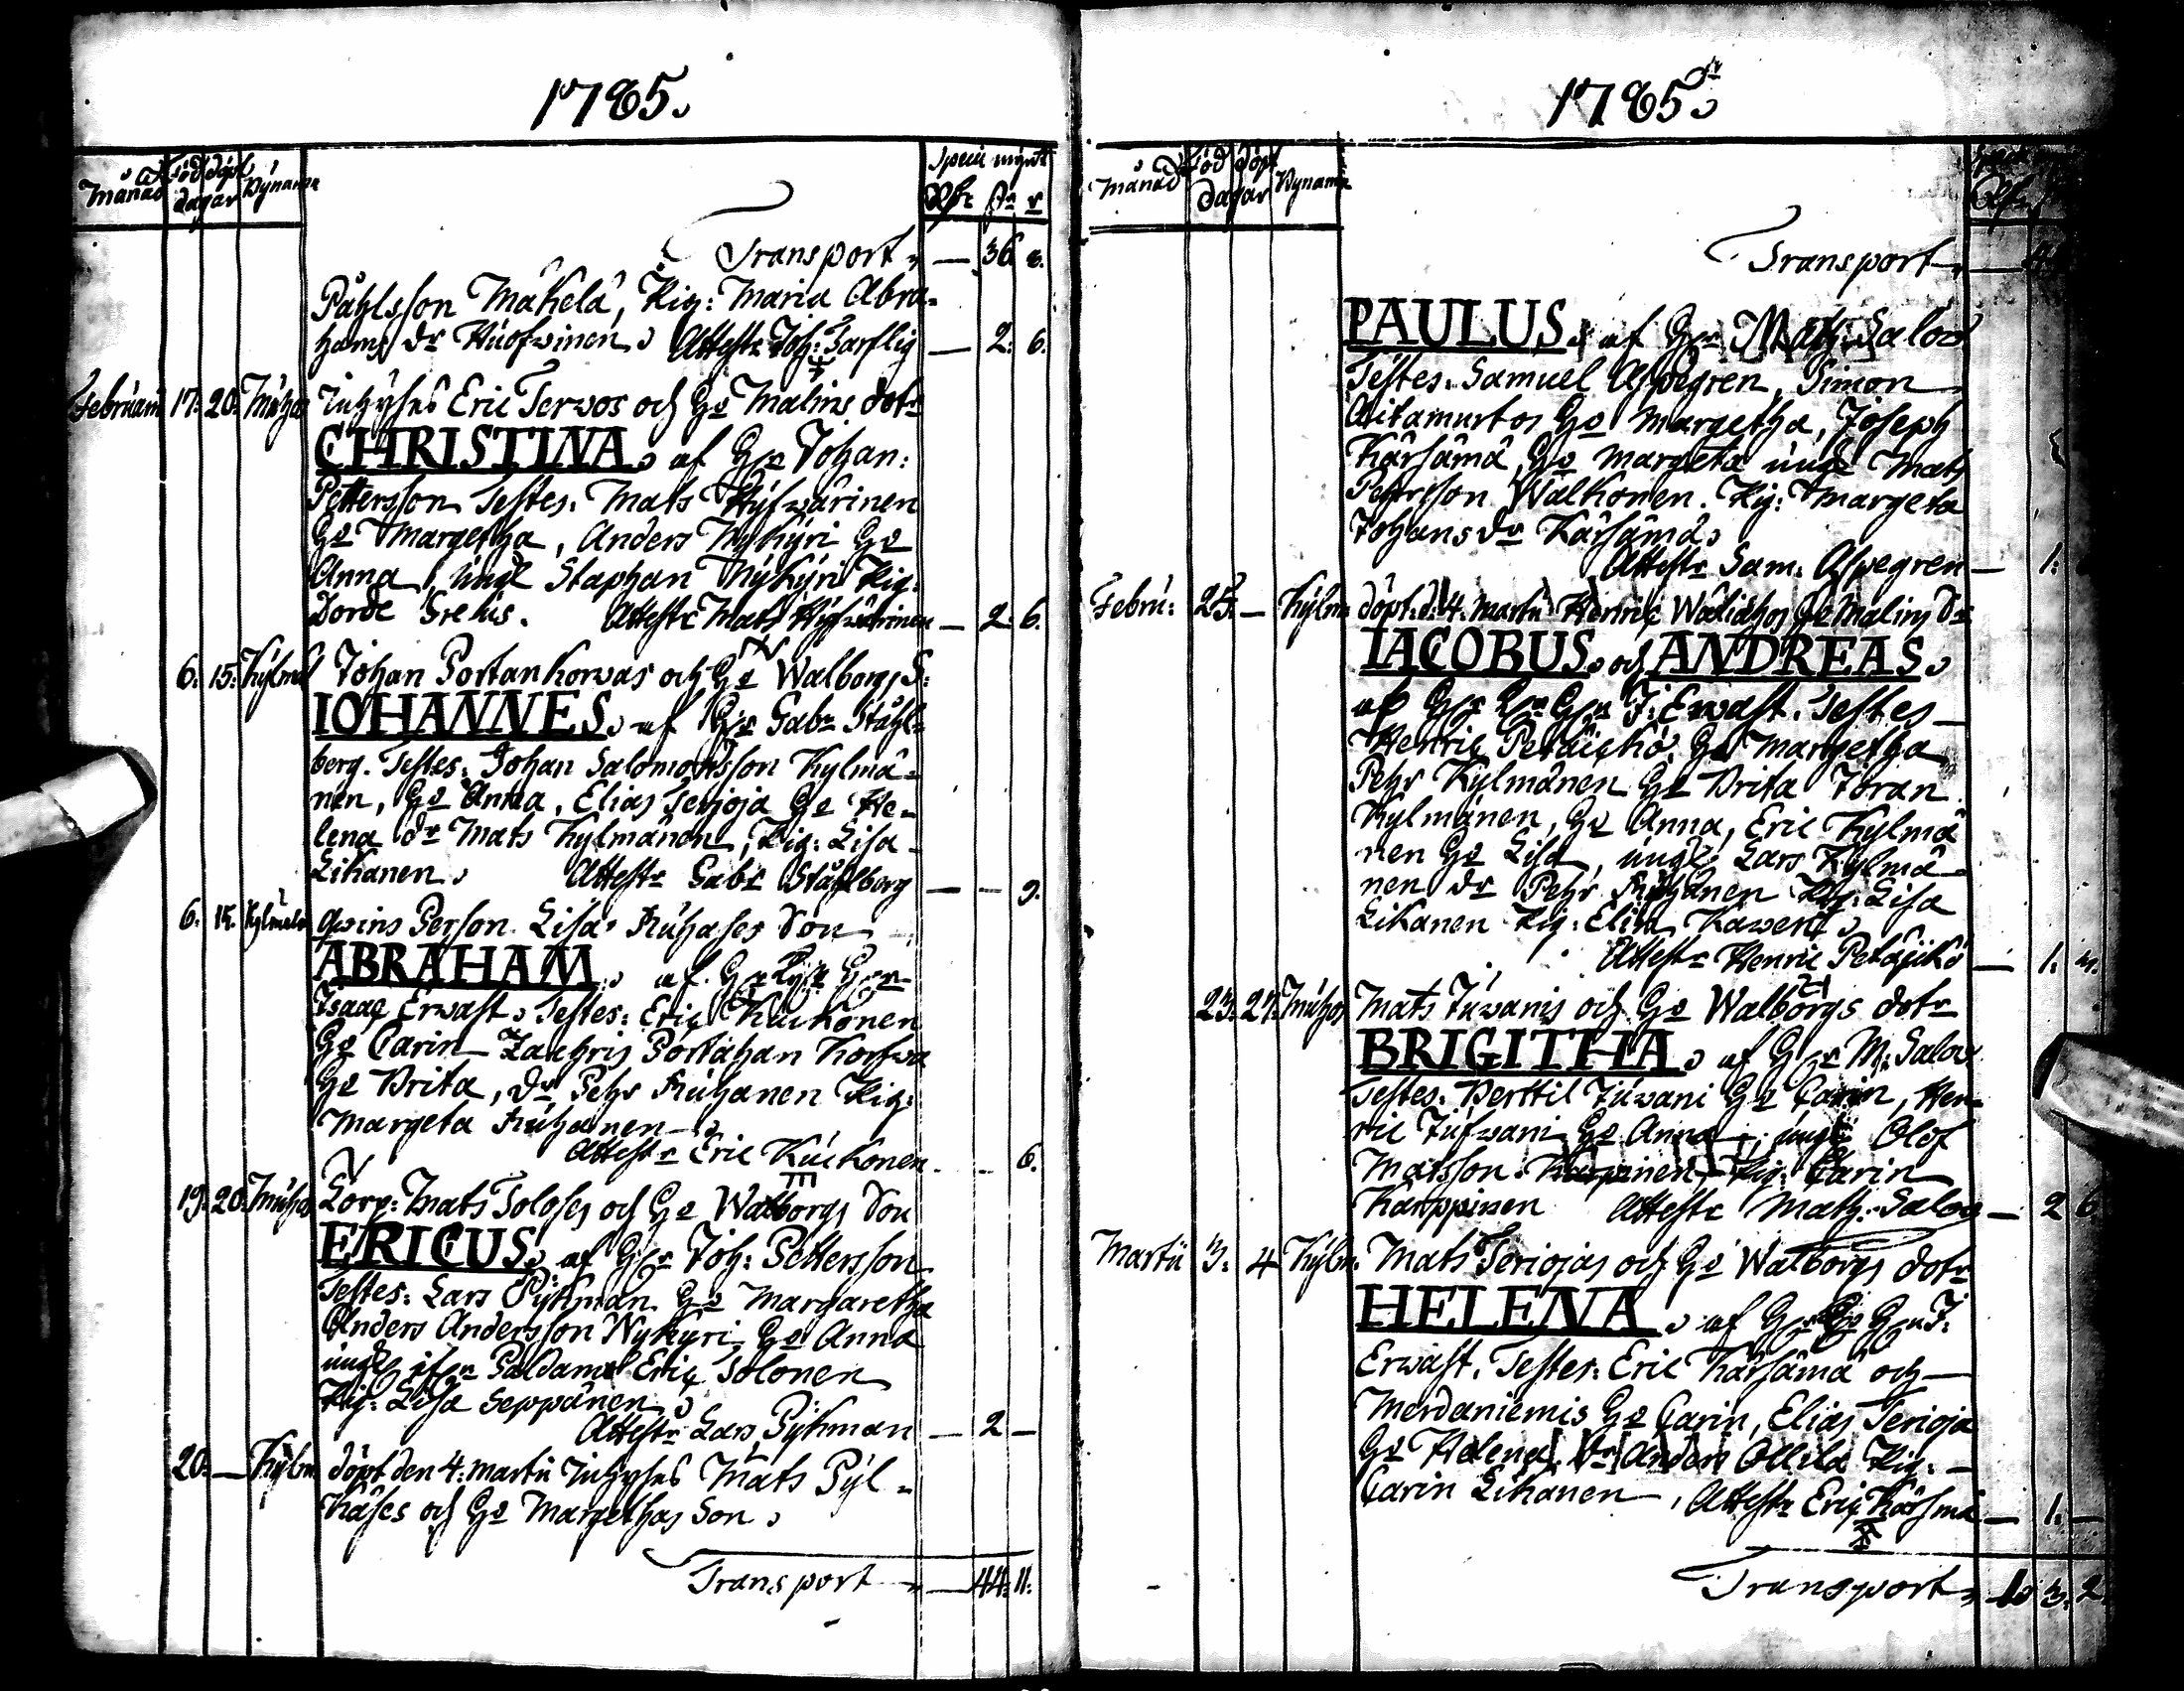 1785.
Månad
Född döpt
dagar
Bÿnamn
Specie mÿnt
Transport — 36 8.
Påhlsson Mäkelä, Pig: Maria Abra-
hams dr Huofwinen. Attestr Joh: Tarflig — 2. 6.
Februarii 17. 20. Muhos Inhÿses Eric Terwos och Ho Malins dotr
CHRISTINA. af Hr Johan:
Pettersson Testes. Mats Hÿfwärinen
Ho Margetha, Anders Nÿkÿri Ho
Anna, ungk Staphan Nÿkÿri Pig:
Dorde Grekus. Attestr Mats Hÿfwärinen — 2. 6.
6. 15. Kÿlmäl Johan Portankorwas och Ho Walborgs S:
IOHANNES. af Hr Gabr Ståhl-
berg. Testes. Johan Salomonsson Kylmä-
nen, Ho Anna, Elias Terioja Ho He-
lena dr Mats Kylmänen, Pig: Lisa
Likanen. Attestr Gabr Ståhlberg — — 9.
6. 15. Kylmäl qwins Person Lisa Huhases Son
ABRAHAM. af Hr
Isaac Erwast. Testes: Eric Kuikonen
Ho Carin Zachris Portahan Korfwa
Ho Brita, dr Pehr Huhanen Pig:
Margeta Huhanen
Attestr Eric Kuikonen — 6.
19. 20. Muhos Torp: Mats Toloses och Ho Walborgs Son
ERICUS. af Hr Joh: Pettersson
Testes: Lars Pÿkman Ho Margaretha
Anders Andersson Nykyri, Ho Anna
ungk Paldamo Eric Tolonen
Pig: Lisa Seppänen.
Attestr Lars Pÿkman — 2 —
20. — Kÿlm döpt den 4. Martii Inhÿses Mats Pÿl-
käses och Ho Margethas Son.
Transport — 44. 11.
1785.
Månad
Född döpt
dagar
Bynamn
Transport —
PAULUS. af Hr Math: Salov
Testes. Samuel Aspegren, Simon
Aitamurtos Ho Margetha, Joseph
Kärsämä, Ho Margeta ungk Mats
Pehrsson Walkonen. Pig: Margeta
Johans dr Kärsämä.
Attestr Sam: Aspegren — 1.
Febru: 25. — Kÿlm döpt. d: 4. Martii Henric Ho Malins Sr
IACOBUS. och ANDREAS.
af Hr J: Erwast. Testes
Henric Petäjckö Ho Margetha
Pehr Kylmänen Ho Brita Jöran
Kylmänen, Ho Anna, Eric Kylmä
nen Ho Lisa, ungk Lars Kylmä
nen dr Pehr Huhanen Pig: Lisa
Likanen Pig: Elisa Kawen.
Attestr Henric Petäjckö — 1.
23. 27. Muhos Mats Juwanis och Ho Walborgs dotr
BRIGITHA. af Hr M: Salov
Testes: Berttil Juwani Ho Carin, Hen-
ric Jufwani Ho Anna, ungk Olof
Matsson Karpinen, Pig: Carin
Karppinen Attestr Math: Salov — 2 6
Martii 3. 4 Kÿlm: Mats Teriojas och Ho Walborgs dotr
HELENA. af Hr J:
Erwast. Testes: Eric Kärsämä och
Merdaniemis Ho Carin, Elias Terioja
Ho Helena. Dr Anders Ollila Pig:
Carin Likanen, Attestr Eric Kärsmä — 1. —
Transport 1. 3. 2.